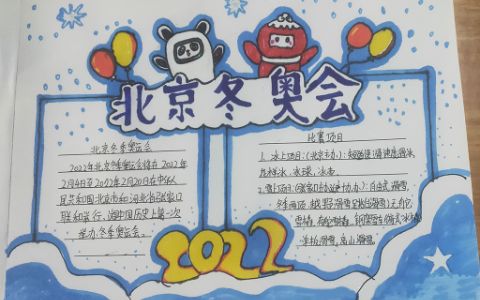 北京冬奥会
北京冬季奥运会
2022年北京冬季奥运会将在2022年
2月4日至2022年2月20日在中华人
民共和国北京市和河北省张家口
联合举行。这是中国历史上第一次
举办冬季奥运会。
比赛项目
1. 冰上项目:(北京主办):短道速滑 速度滑冰
花样滑冰、冰球、冰壶。
2. 雪上项目:(张家口 协办):自由式滑雪、
冬季两项 越野滑雪 跳台滑雪
雪橇、
单板滑雪、高山滑雪。
2022